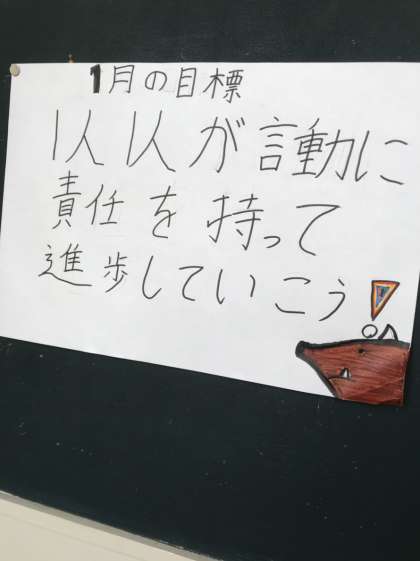 1月の目標
1人1人が言動に
責任を持って
進歩していこう!